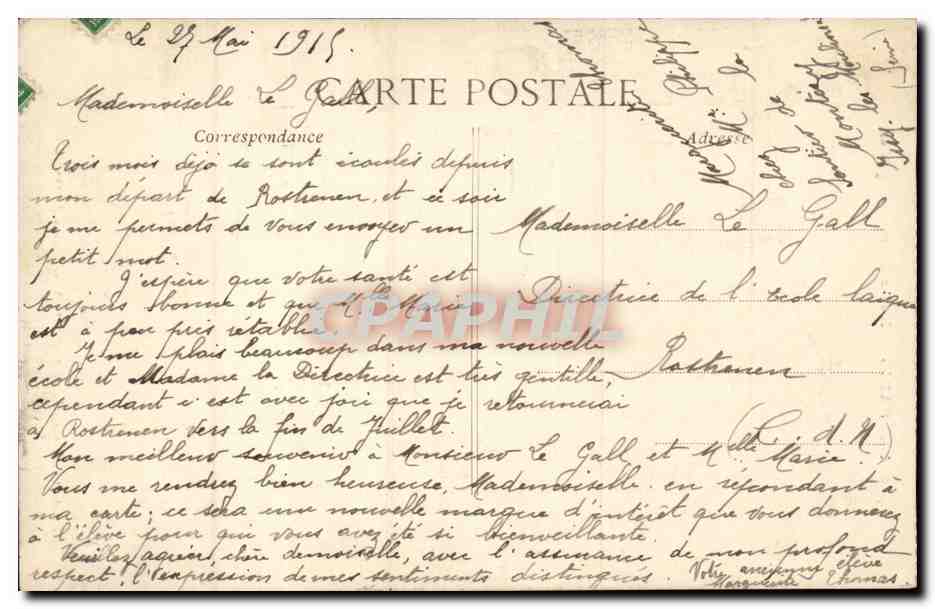 Le 27 Mai 1915.
CARTE POSTALE
Mademoiselle Le Gall,
Correspondance
Adresse
Trois mois déjà se sont écoulés depuis
mon départ de Rostrenen, et ce soir
je me permets de vous envoyer un
petit mot.
J'espère que votre santé est
toujours bonne et que Mlle Marie
est à peu près rétablie.
Je me plais beaucoup dans ma nouvelle
école et Madame la Directrice est très gentille,
cependant c'est avec joie que je retournerai
à Rostrenen vers la fin de Juillet.
Mon meilleur souvenir à Monsieur Le Gall et Mlle Marie.
Vous me rendrez bien heureuse, Mademoiselle en répondant à
ma carte; ce sera une nouvelle marque d'intérêt que vous donnerez
à l'élève pour qui vous avez été si bienveillante.
Veuillez agréer, chère demoiselle, avec l'assurance de mon profond
respect, l'expression de mes sentiments distingués.
Votre ancienne élève
Marguerite Thomas.
Mademoiselle Le Gall
Directrice de l'Ecole laïque
Rostrenen
(C. d. N)
Marguerite Thomas
chez M. de
CPAPHIL